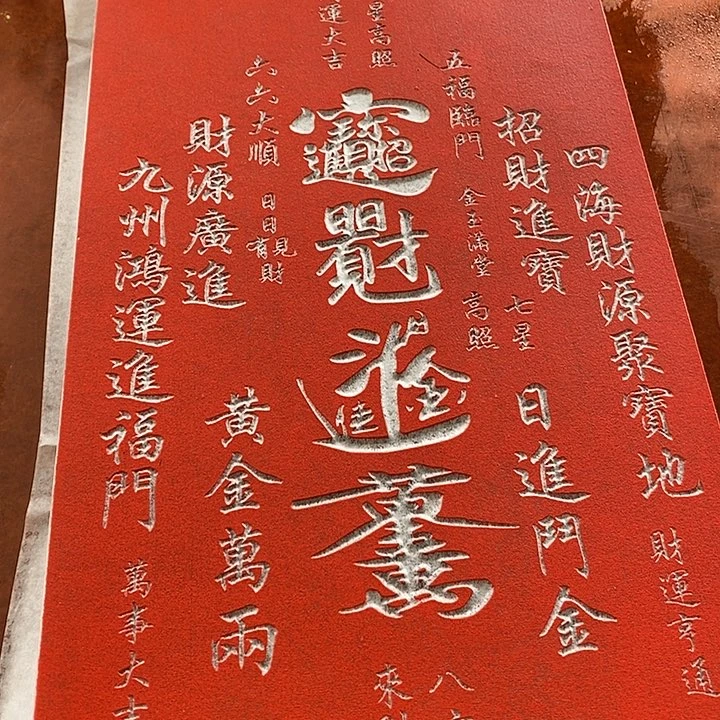 四海財源聚寶地
財運亨通
招財進寶
日進鬥金
七星
高照
五福臨門
金玉滿堂
星高照
運大吉
招財進寶
日日見財
日進斗金
黃金萬兩
六六大順
日日有見財
財源廣進
黃金萬兩
九州鴻運進福門
萬事大吉
八
來